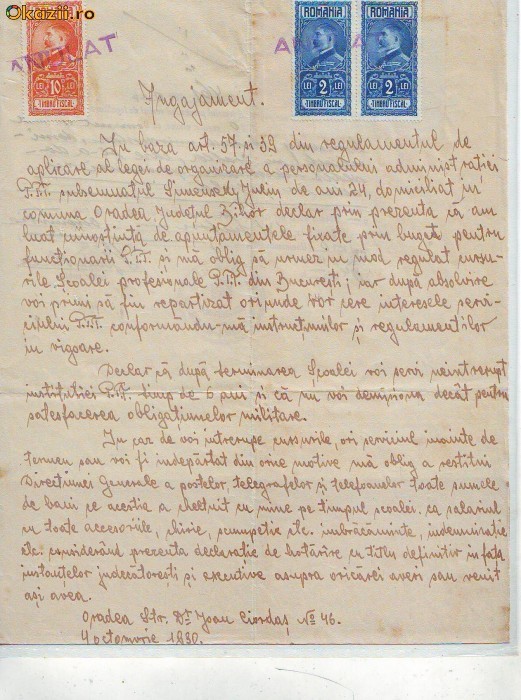 Okazii.ro
ROMANIA
ROMANIA
ROMANIA
ANULAT
ANULAT
10 LEI
LEI 2
2 LEI
TIMBRU FISCAL
TIMBRU FISCAL
TIMBRU FISCAL
Ingajament.
In baza art. 57 și 32 din regulamentul de
aplicare al legei de organizare a personalului administrației
P.T.T. subsemnatul Juliu de ani 24, domiciliat în
comuna Oradea Județul Bihor declar prin prezenta că am
luat cunoștință de apuntamentele fixate prin buget pentru
funcționarii P.T.T. și mă oblig să urmez în mod regulat cursu-
rile Școalei profesionale P.T.T. din București; iar după absolvire
voi primi să fiu repartizat ori unde vor cere interesele servi-
ciului P.T.T. conformându-mă instrucțiunilor și regulamentelor
in vigoare.
Declar că după terminarea Școalei voi servi neintrerupt
instituției P.T.T. timp de 6 ani și că nu voi demisiona decât pentru
satesfacerea obligațiunelor militare.
In caz de voi intrerupe cursurile, ori serviciul inainte de
termen sau voi fi indepărtat din orice motive mă oblig a restitui
Direcțiunei Generale a poștelor telegrafelor și telefoanelor toate sumele
de bani ce acestia a cheltuit cu mine pe timpul școalei, ca salariul
cu toate accesoriile, chirie, scumpetie etc. imbrăcăminte, indemnizație
etc. considerând prezenta declarație de hotărîre cu titlu definitiv in fața
instanțelor judecătorești și executive asupra oricărei averi sau venit
ași avea.
Oradea Str. Dr Ioan Ciordaș No 46.
4 octomvrie 1930.